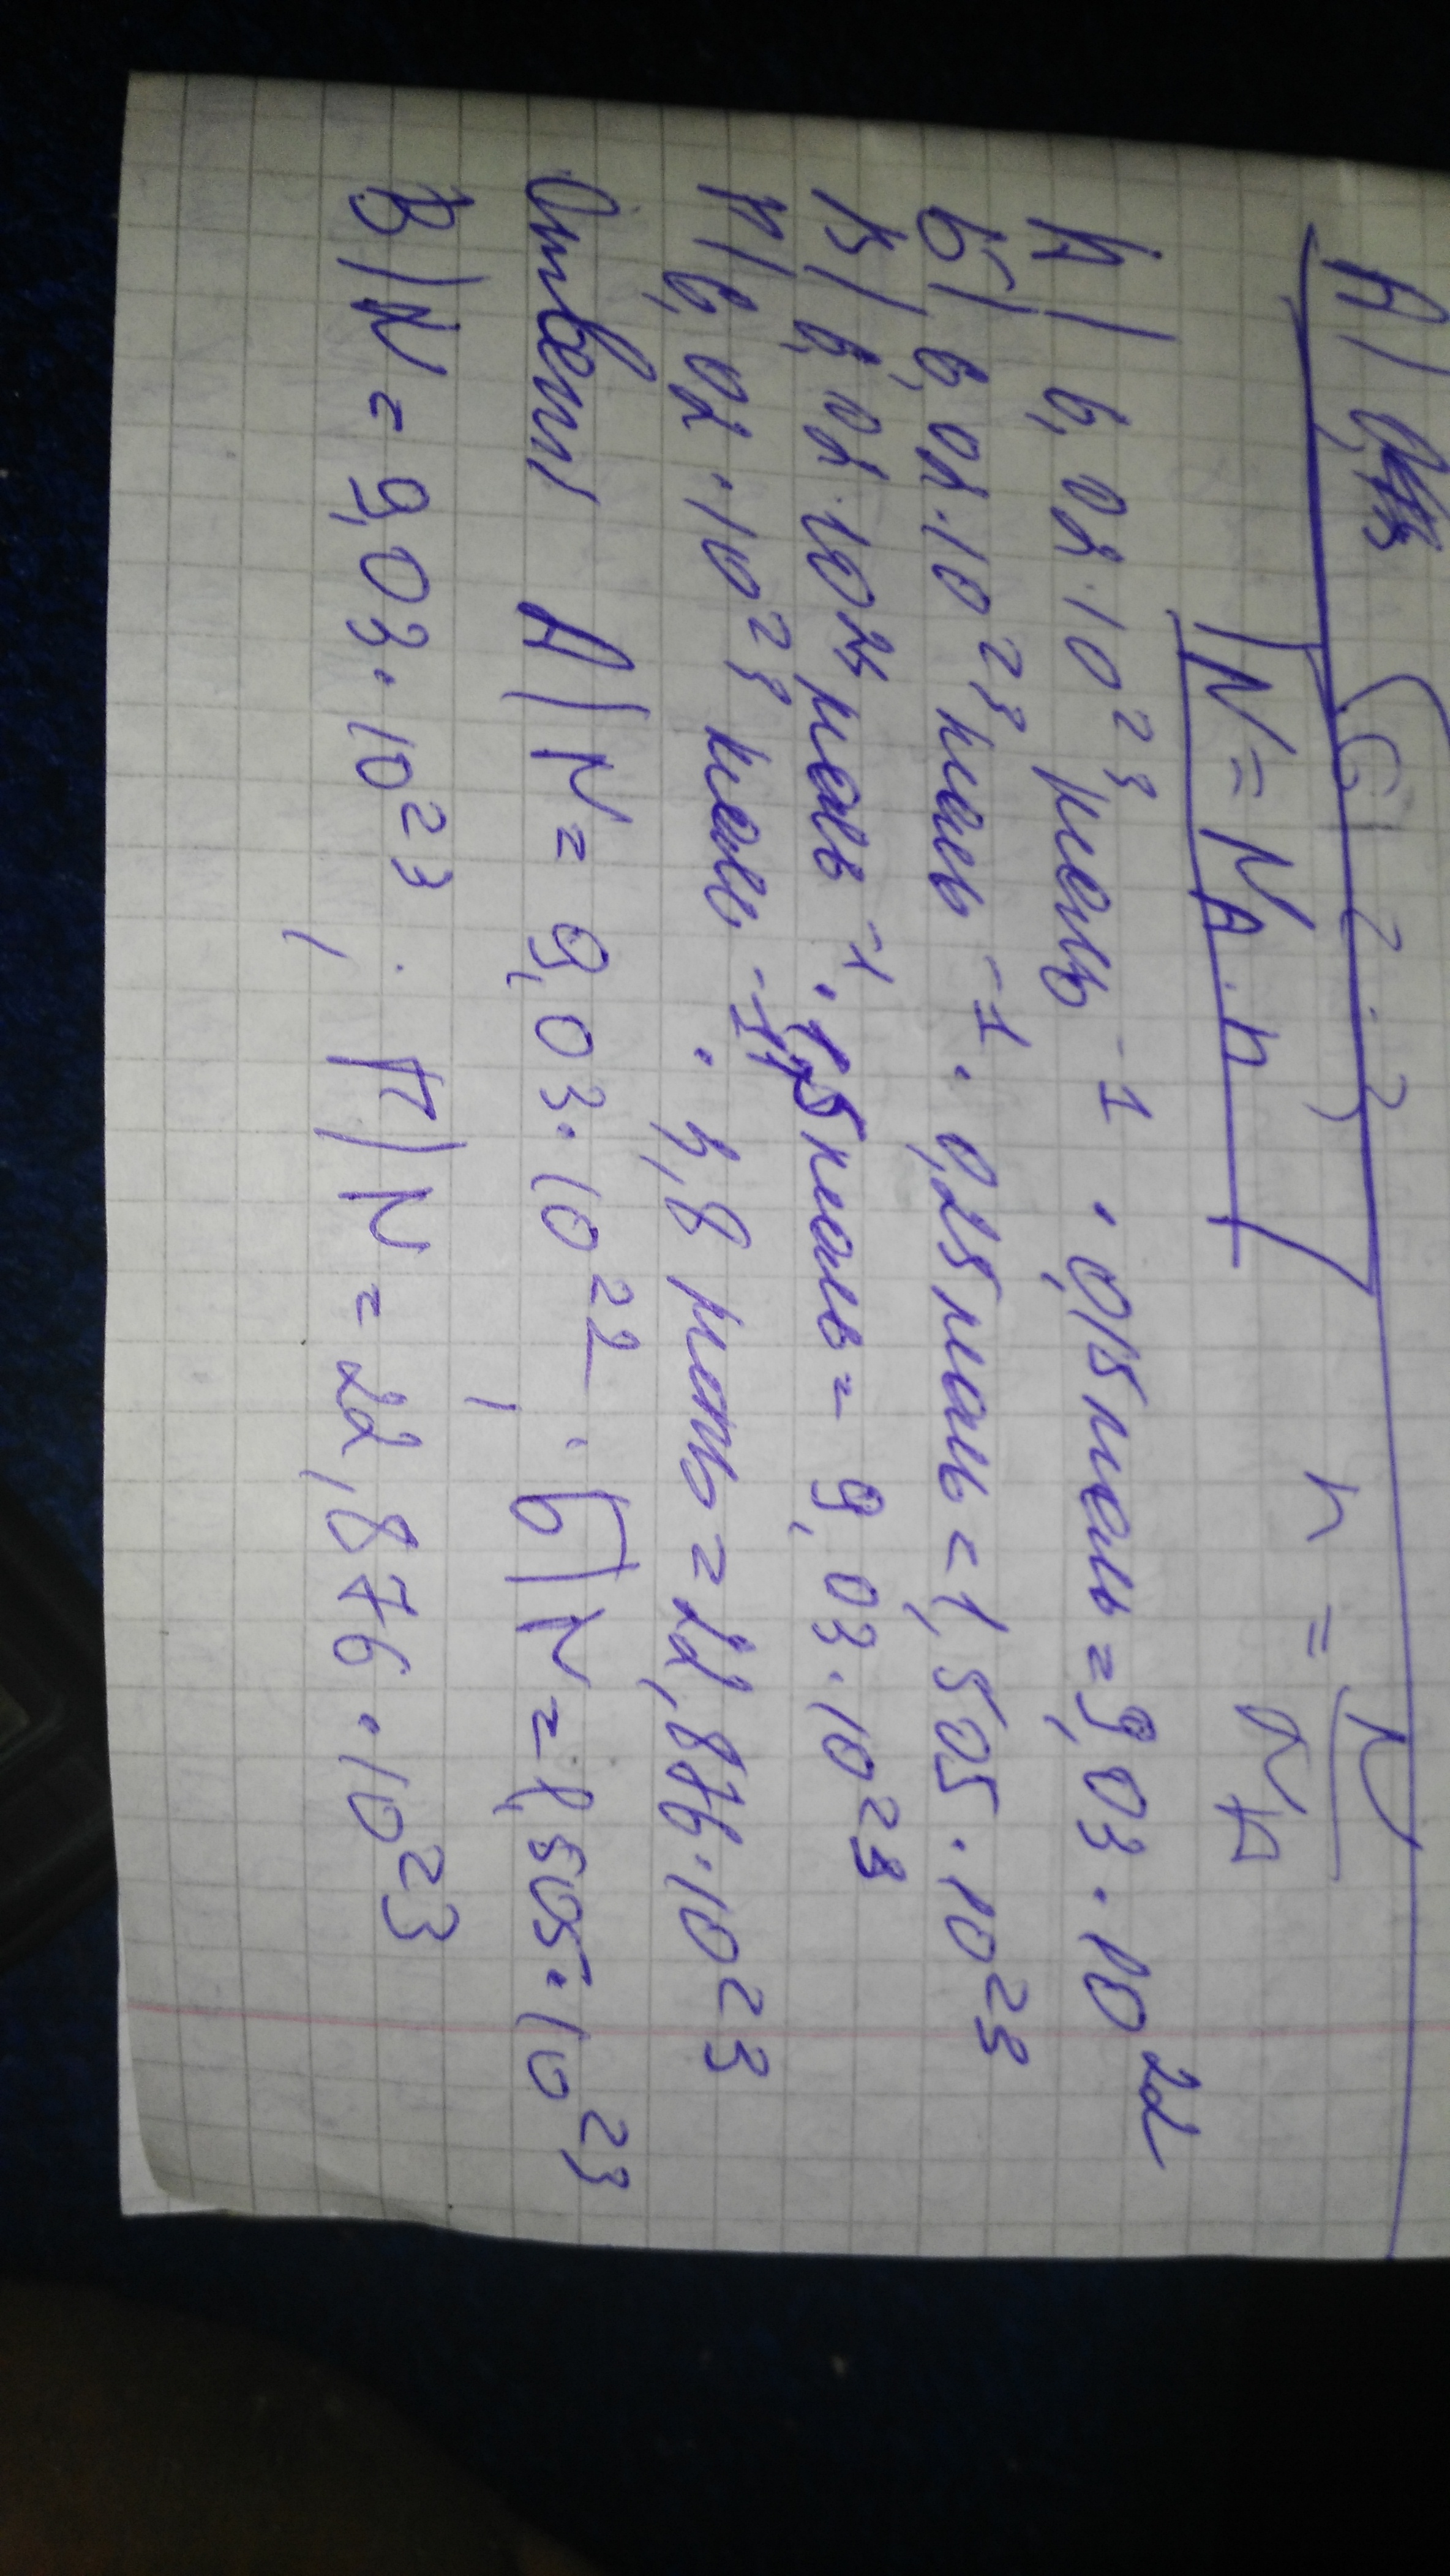 А)
n = N / NA
N = NA · n
А) 6,02·10²³ моль⁻¹ · 0,15 моль = 9,03·10²²
Б) 6,02·10²³ моль⁻¹ · 0,25 моль = 1,505·10²³
В) 6,02·10²³ моль⁻¹ · 1,5 моль = 9,03·10²³
Г) 6,02·10²³ моль⁻¹ · 3,8 моль = 22,876·10²³
Ответ: А) N = 9,03·10²²; Б) N = 1,505·10²³
В) N = 9,03·10²³; Г) N = 22,876·10²³